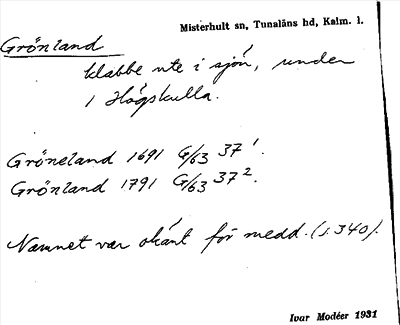 Misterhult sn, Tunaläns hd, Kalm. l.
Grönland
klabbe ute i sjön, under
1 Högskulla.
Gröneland 1691 G/63 37¹.
Grönland 1791 G/63 37².
Namnet var okänt för medd. (s. 340).
Ivar Modéer 1931